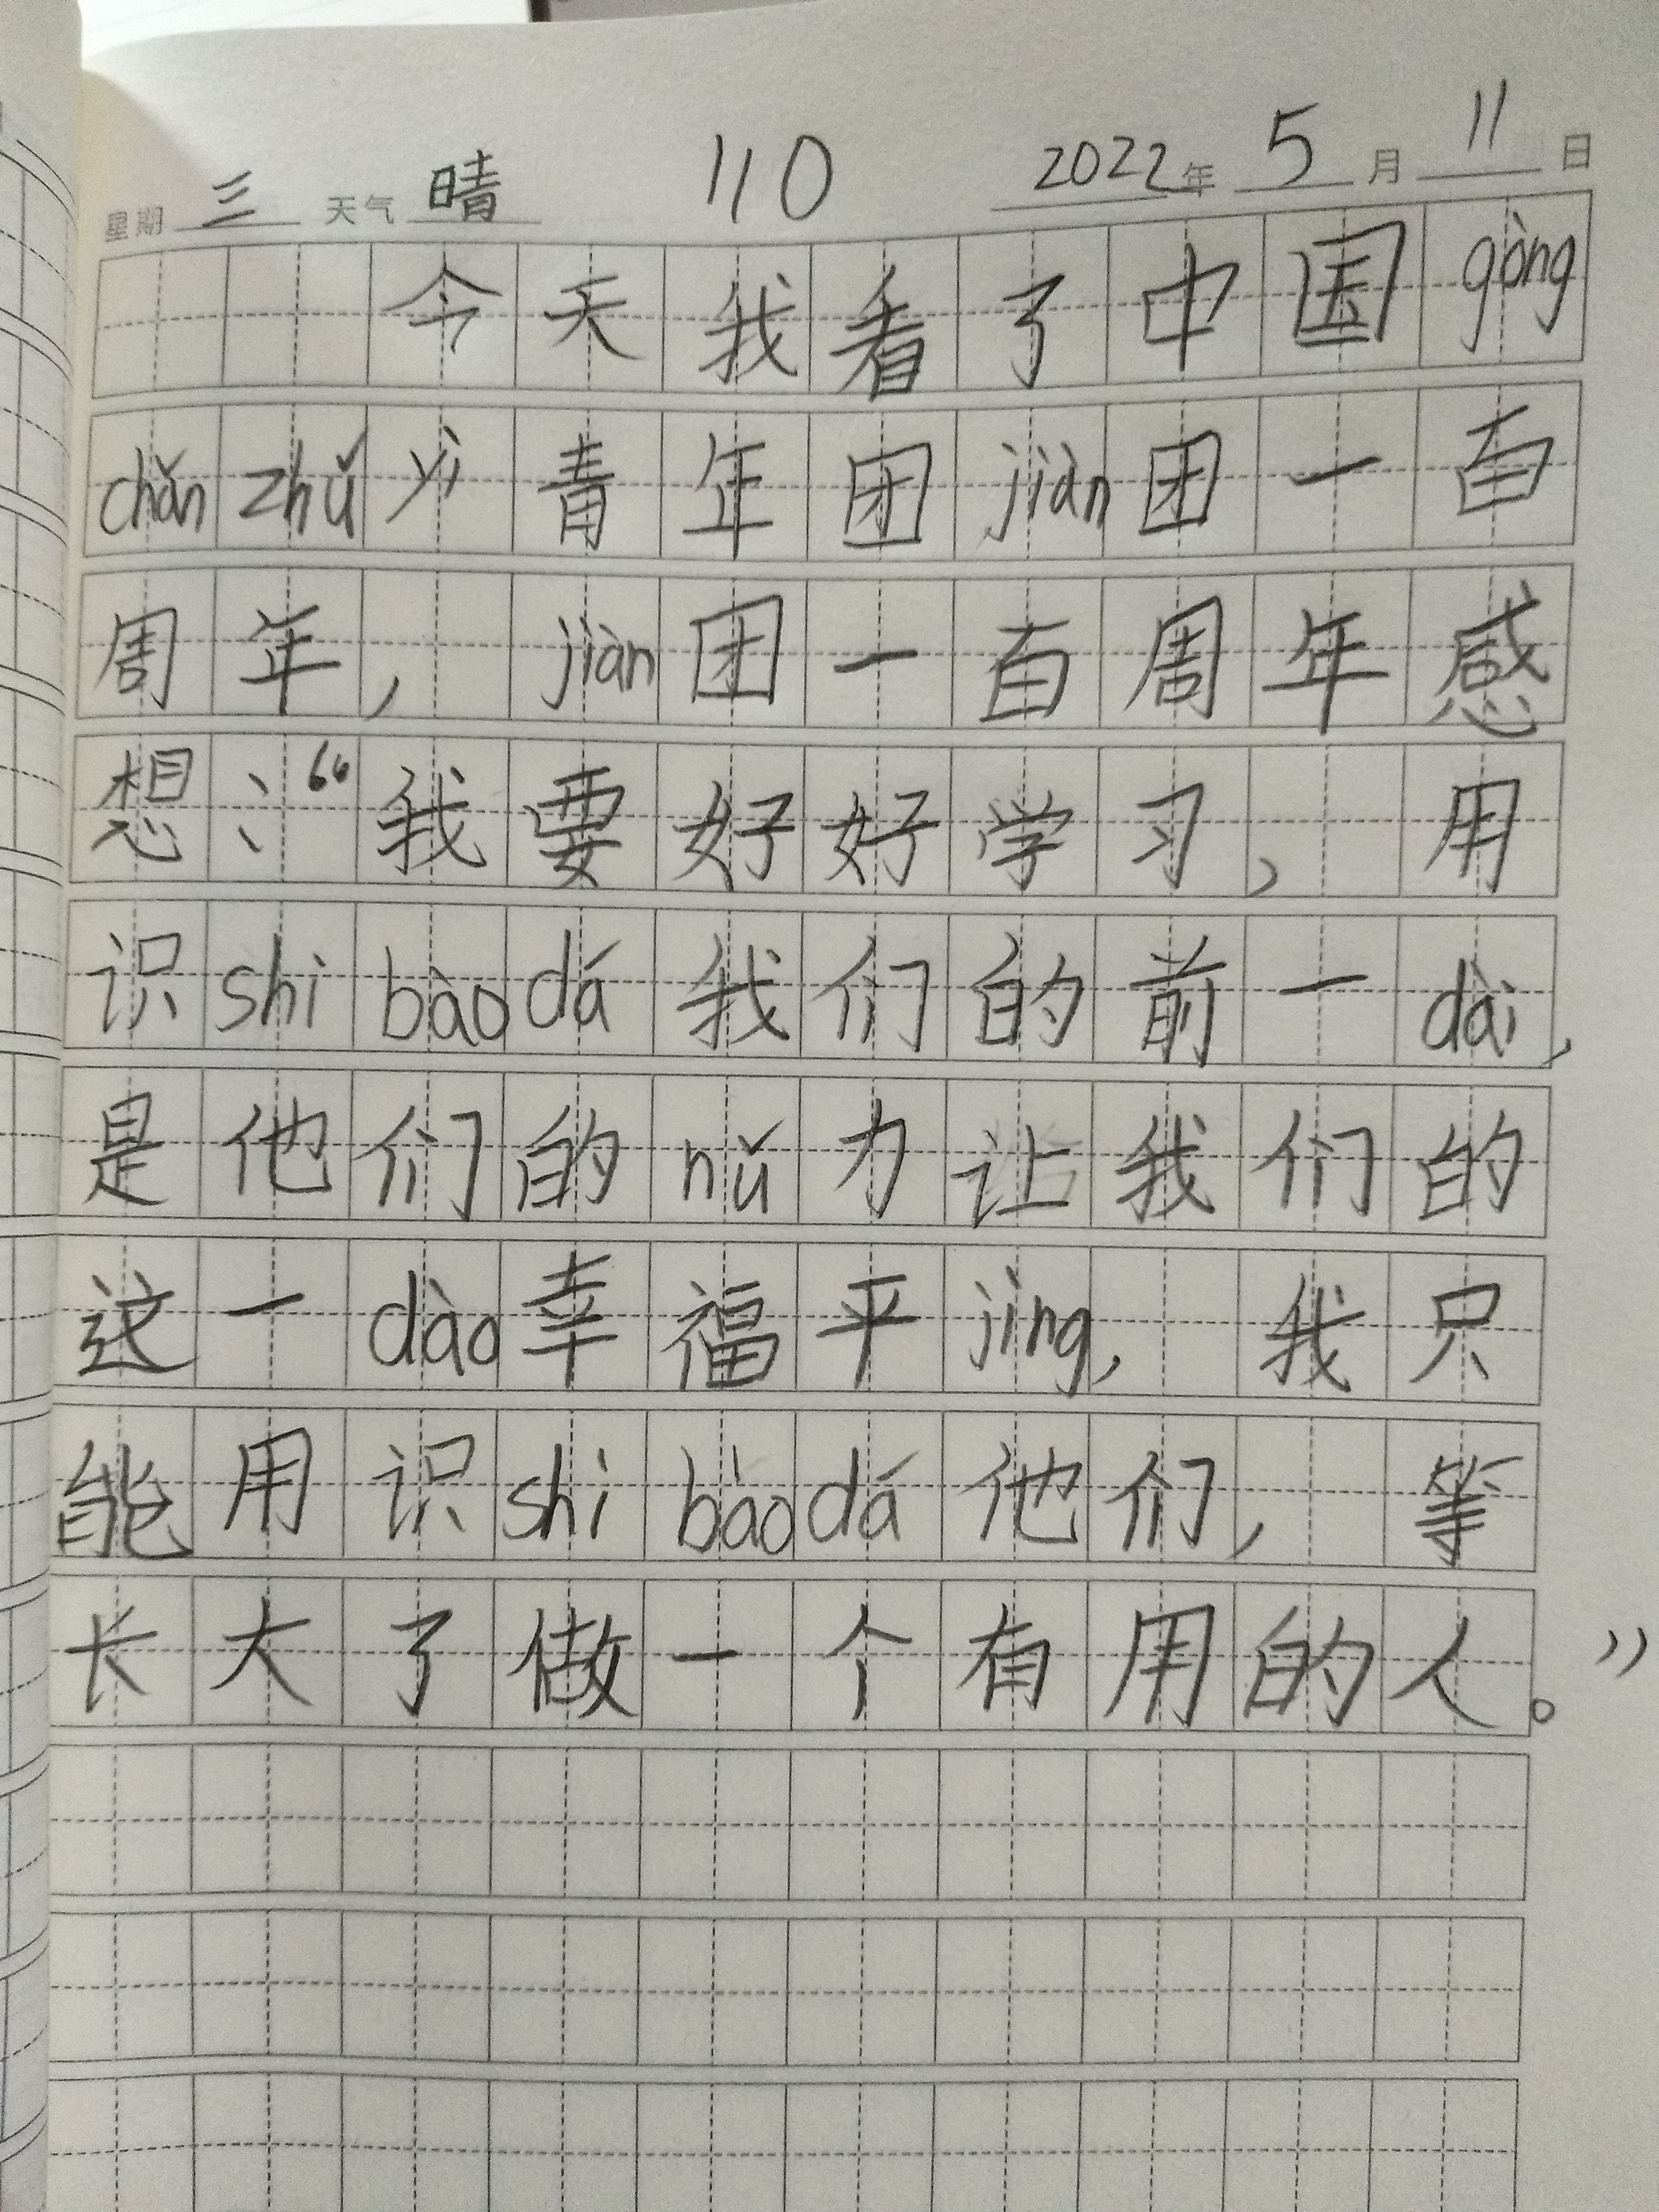 星期 三 天气 晴 110 2022年 5 月 11 日
今天我看了中国gòng
chǎn zhǔ yì 青年团jiàn团一百
周年，jiàn团一百周年感
想：“我要好好学习，用
识shi bào dá 我们的前一dài，
是他们的nǔ力让我们的
这一dào幸福平jìng，我只
能用识shi bào dá 他们，等
长大了做一个有用的人。”